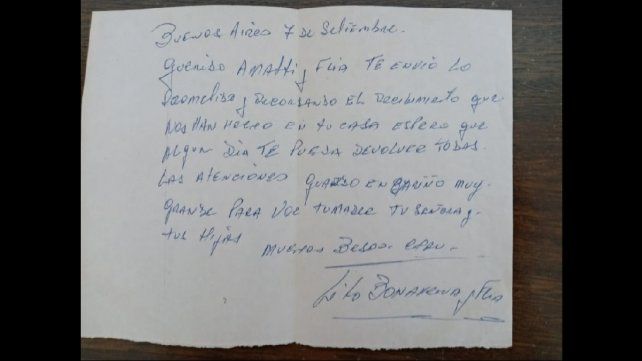 Buenos Aires 7 de Setiembre.
Querido Amatti y Flia Te envio lo
prometido, y recorsando el recibimiento que
nos han hecho en tu casa espero que
algun dia te pueda devolver todas
las atenciones guardo en cariño muy
grande para vos tu madre tu señora y
tus hijas
muchos Besos
Bonavena y Flia